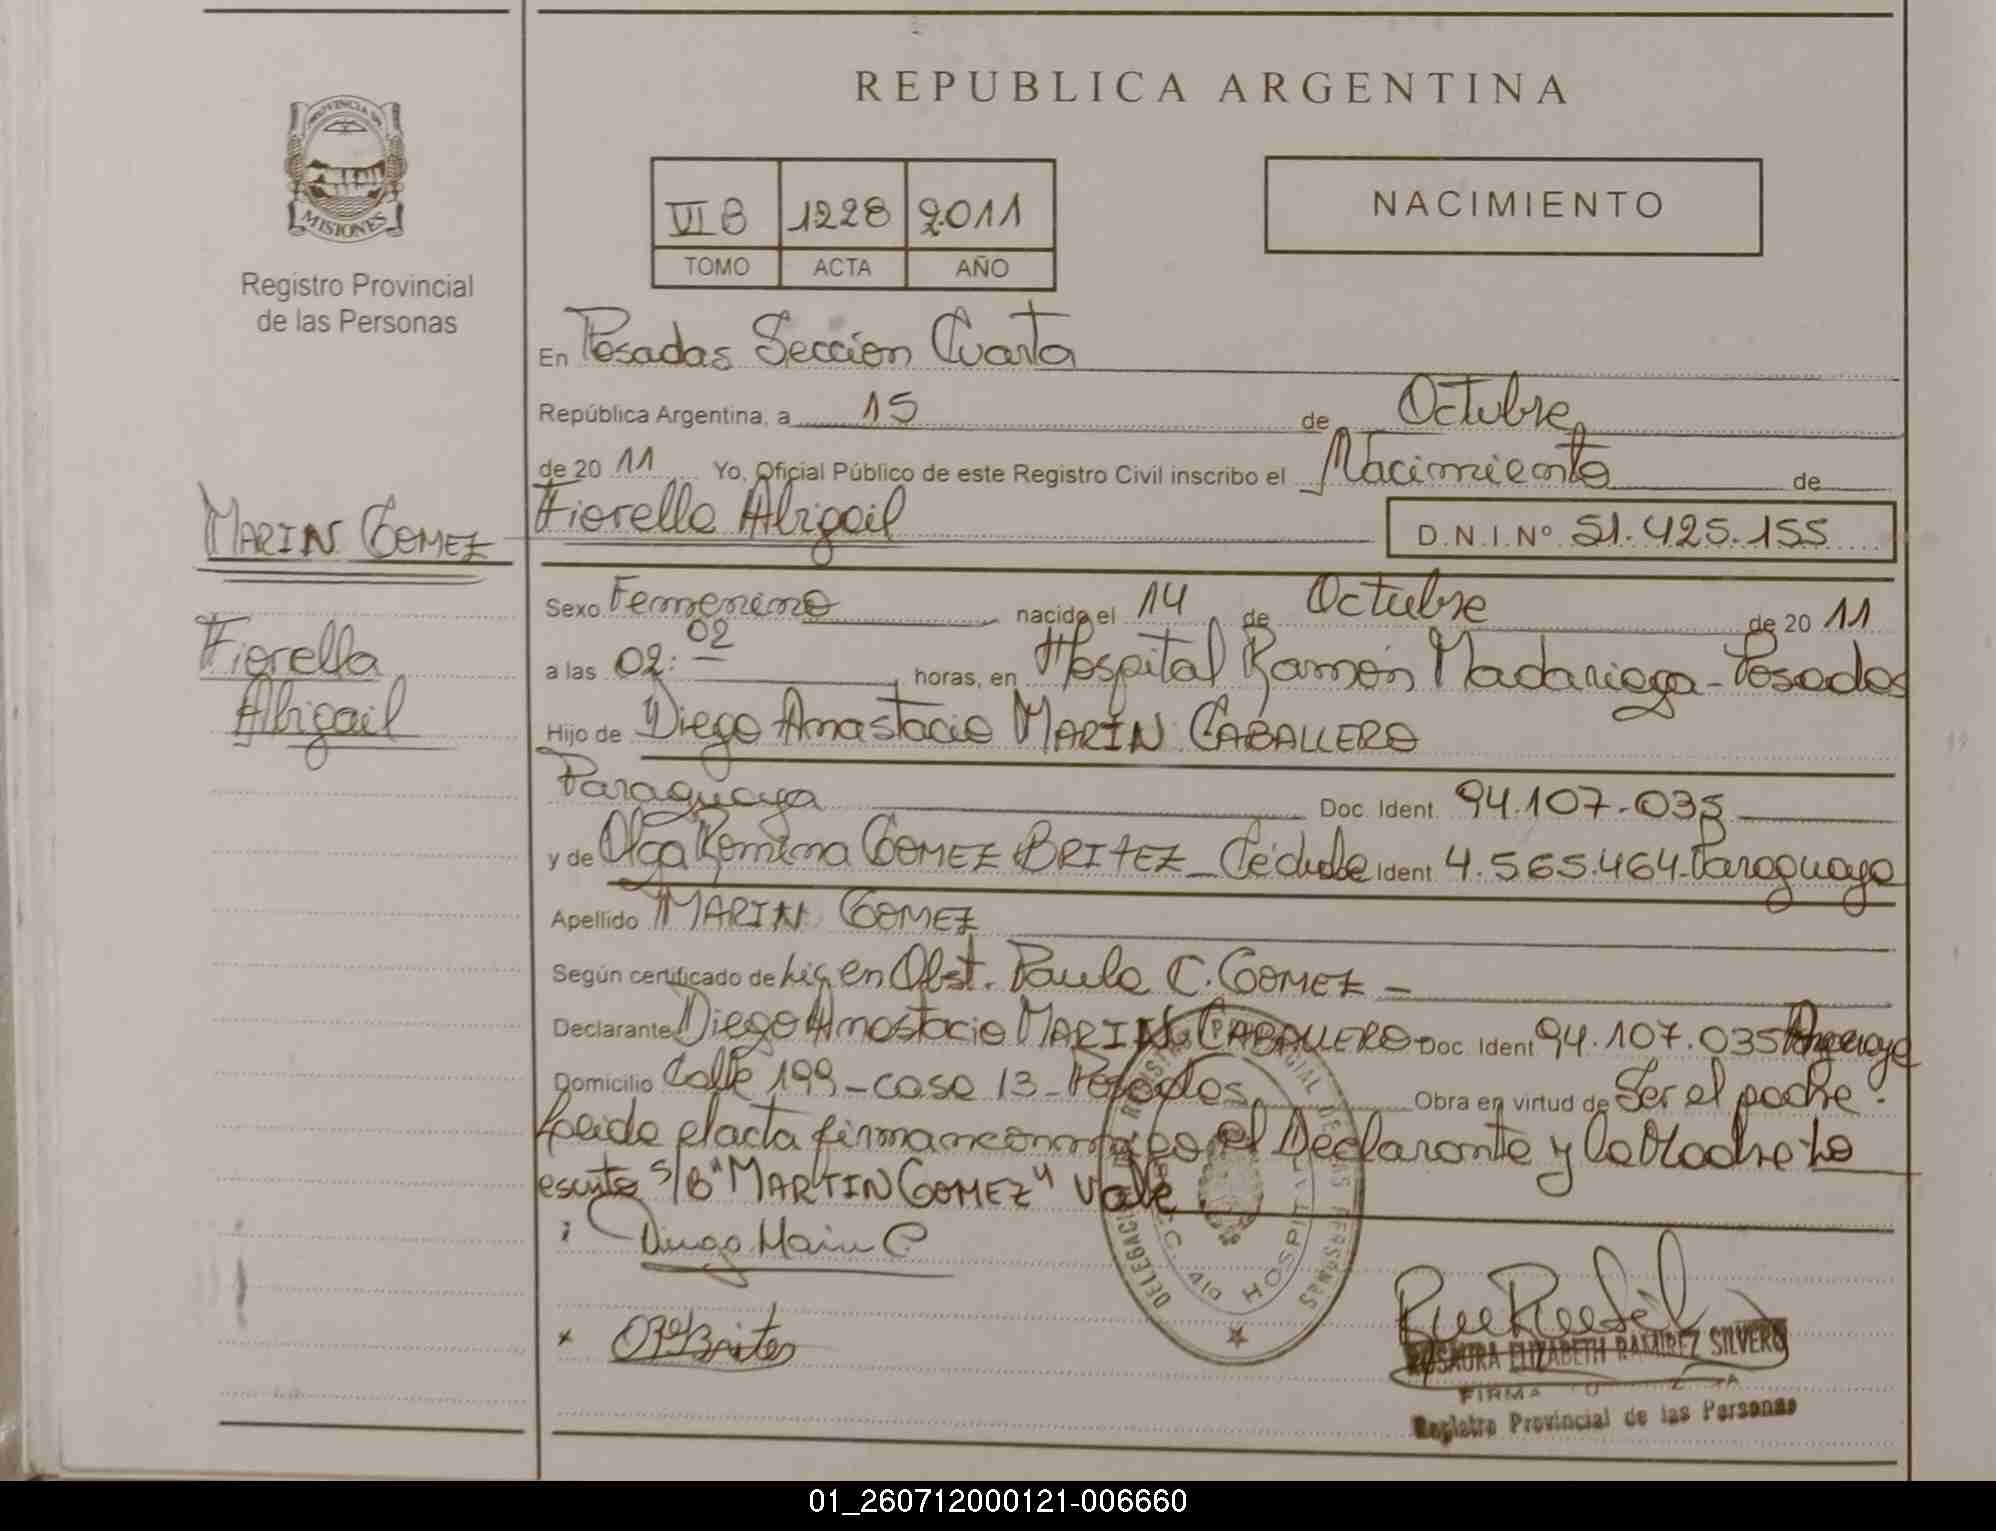 REPUBLICA ARGENTINA
PROVINCIA DE
MISIONES
Registro Provincial
de las Personas
VI B 1228 2011
TOMO ACTA AÑO
NACIMIENTO
En Posadas Seccion Cuarta
República Argentina, a 15 de Octubre
de 20 11 Yo, Oficial Público de este Registro Civil inscribo el Nacimiento de
MARIN GOMEZ
Fiorella Abigail
Fiorella Abigail
D.N.I.Nº 51.425.155
Sexo Femenino nacido el 14 de Octubre de 20 11
a las 02:02 horas, en Hospital Ramón Madariaga - Posadas
Hijo de Diego Anastacio MARIN CABALLERO
Paraguaya Doc. Ident. 94.107.035
y de Olga Romina GOMEZ BRITEZ - Cédula Ident 4.565.464 - Paraguaya
Apellido MARIN GOMEZ
Según certificado de Lic. en Obst. Paula C. GOMEZ -
Declarante Diego Anastacio MARIN CABALLERO - Doc. Ident 94.107.035 Paraguaya
Domicilio Calle 199 - casa 13 - Posadas Obra en virtud de Ser el padre.
Leida el acta firman conmigo el Declarante y la Madre - Lo
escrito S/B "MARTIN GOMEZ" Vale
Diego Marin C
x ORGBritez
DELEGACION REGISTRO PROVINCIAL DE LAS PERSONAS
HOSPITAL
ROSAURA ELIZABETH RAMIREZ SILVERO
FIRMA
Registro Provincial de las Personas
01_260712000121-006660